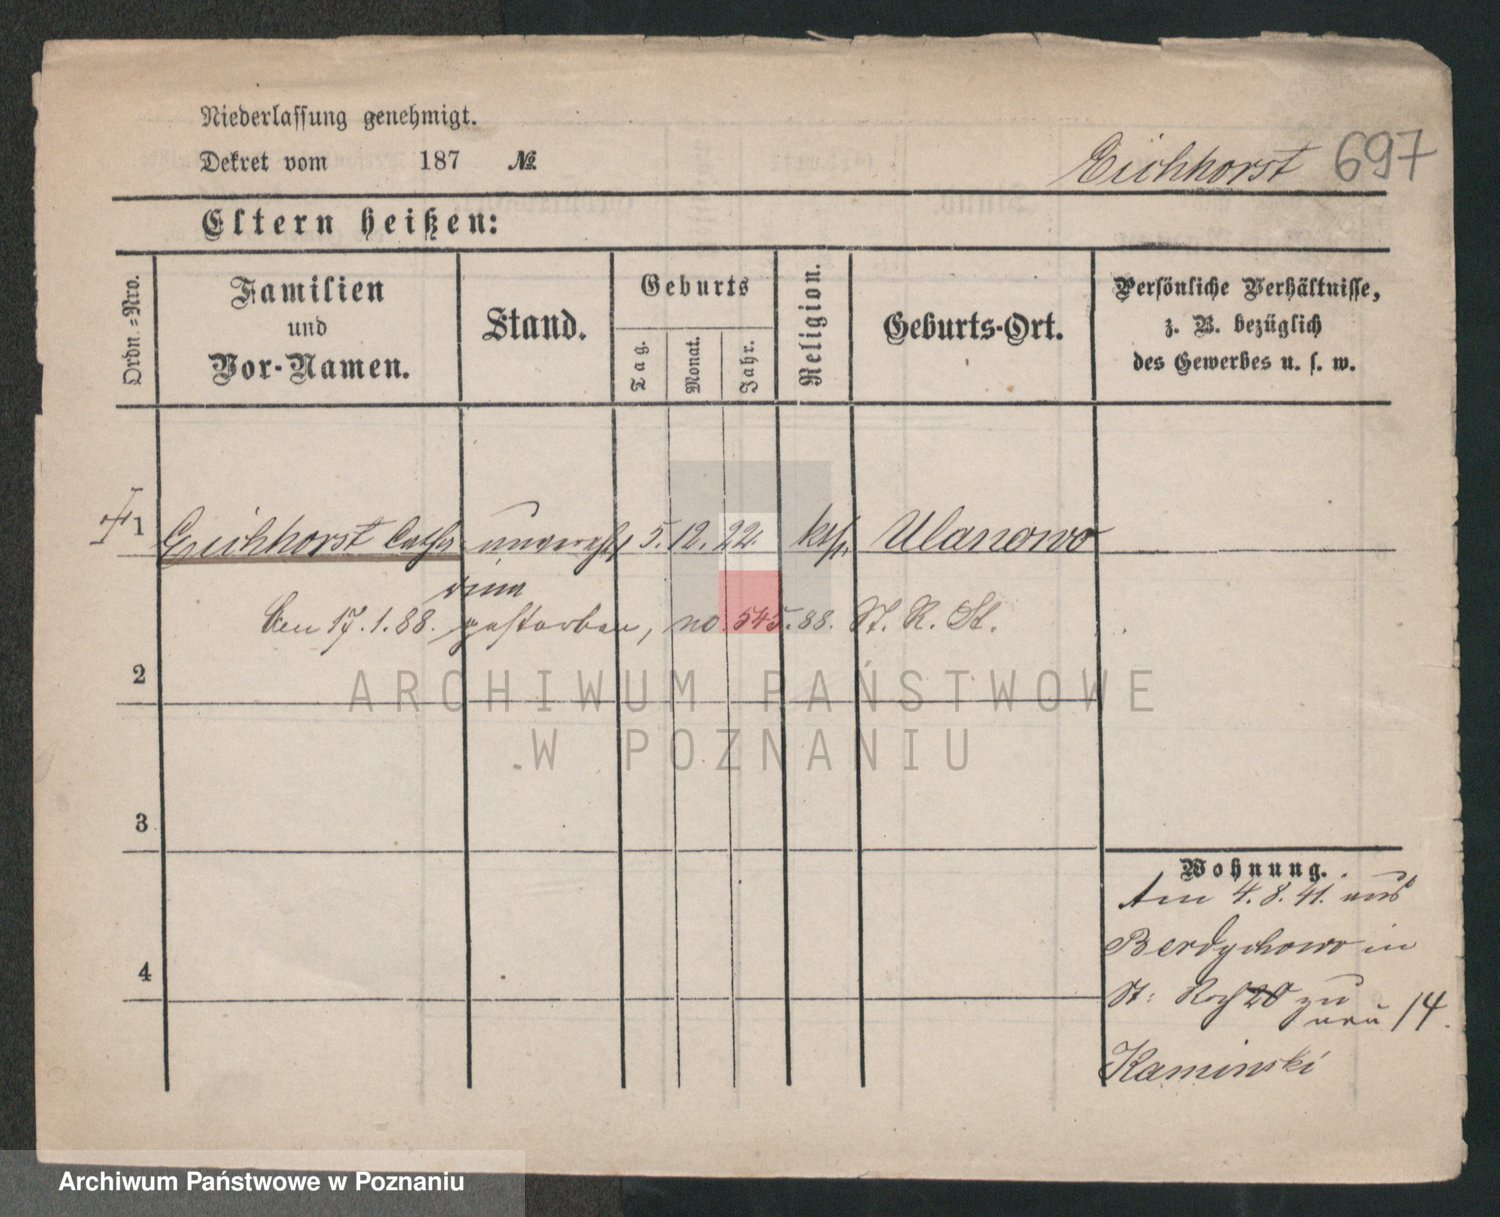 Niederlassung genehmigt.
Dekret vom 187 №
Eichhorst 697
Eltern heißen:
Ordn.-Nro.
Familien
und
Vor-Namen.
Stand.
Geburts
Tag.
Monat.
Jahr.
Religion.
Geburts-Ort.
Persönliche Verhältnisse,
z. B. bezüglich
des Gewerbes u. s. w.
1 Eichhorst Catha unvereh. 5. 12. 22. kth. Ulanowo
rina
Den 17.1.88. gestorben, no. 545.88 St. R. St.
2
ARCHIWUM PAŃSTWOWE
W POZNANIU
3
4
Wohnung.
Am 4.8.41. aus
Berdychowo in
St: Roch 20 zu
neu 14.
Kaminski
Archiwum Państwowe w Poznaniu